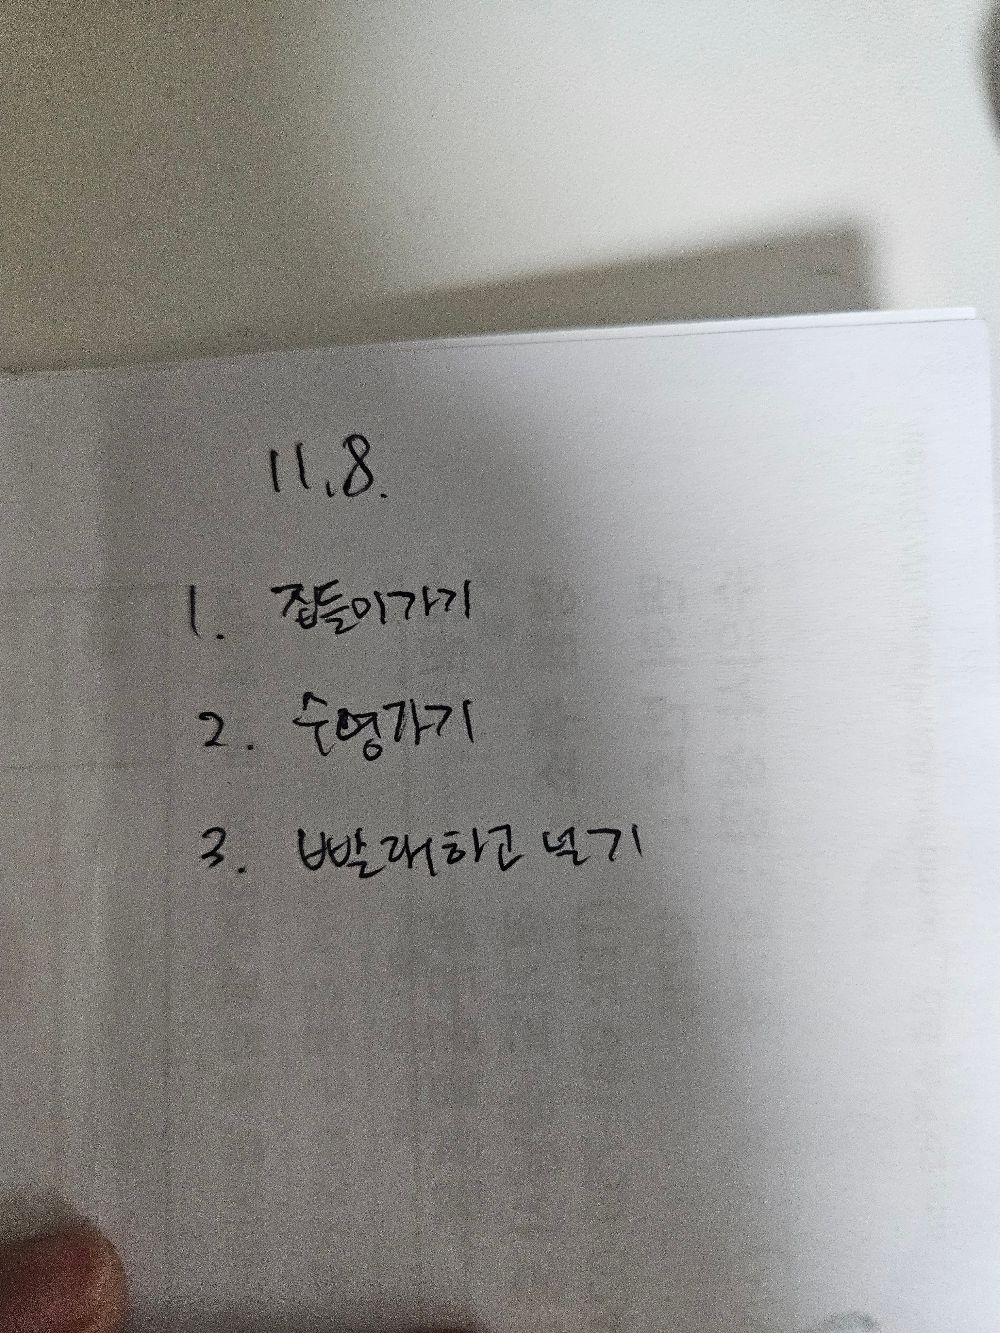 11.8.
1. 집들이가기
2. 수영가기
3. 빨래하고 널기